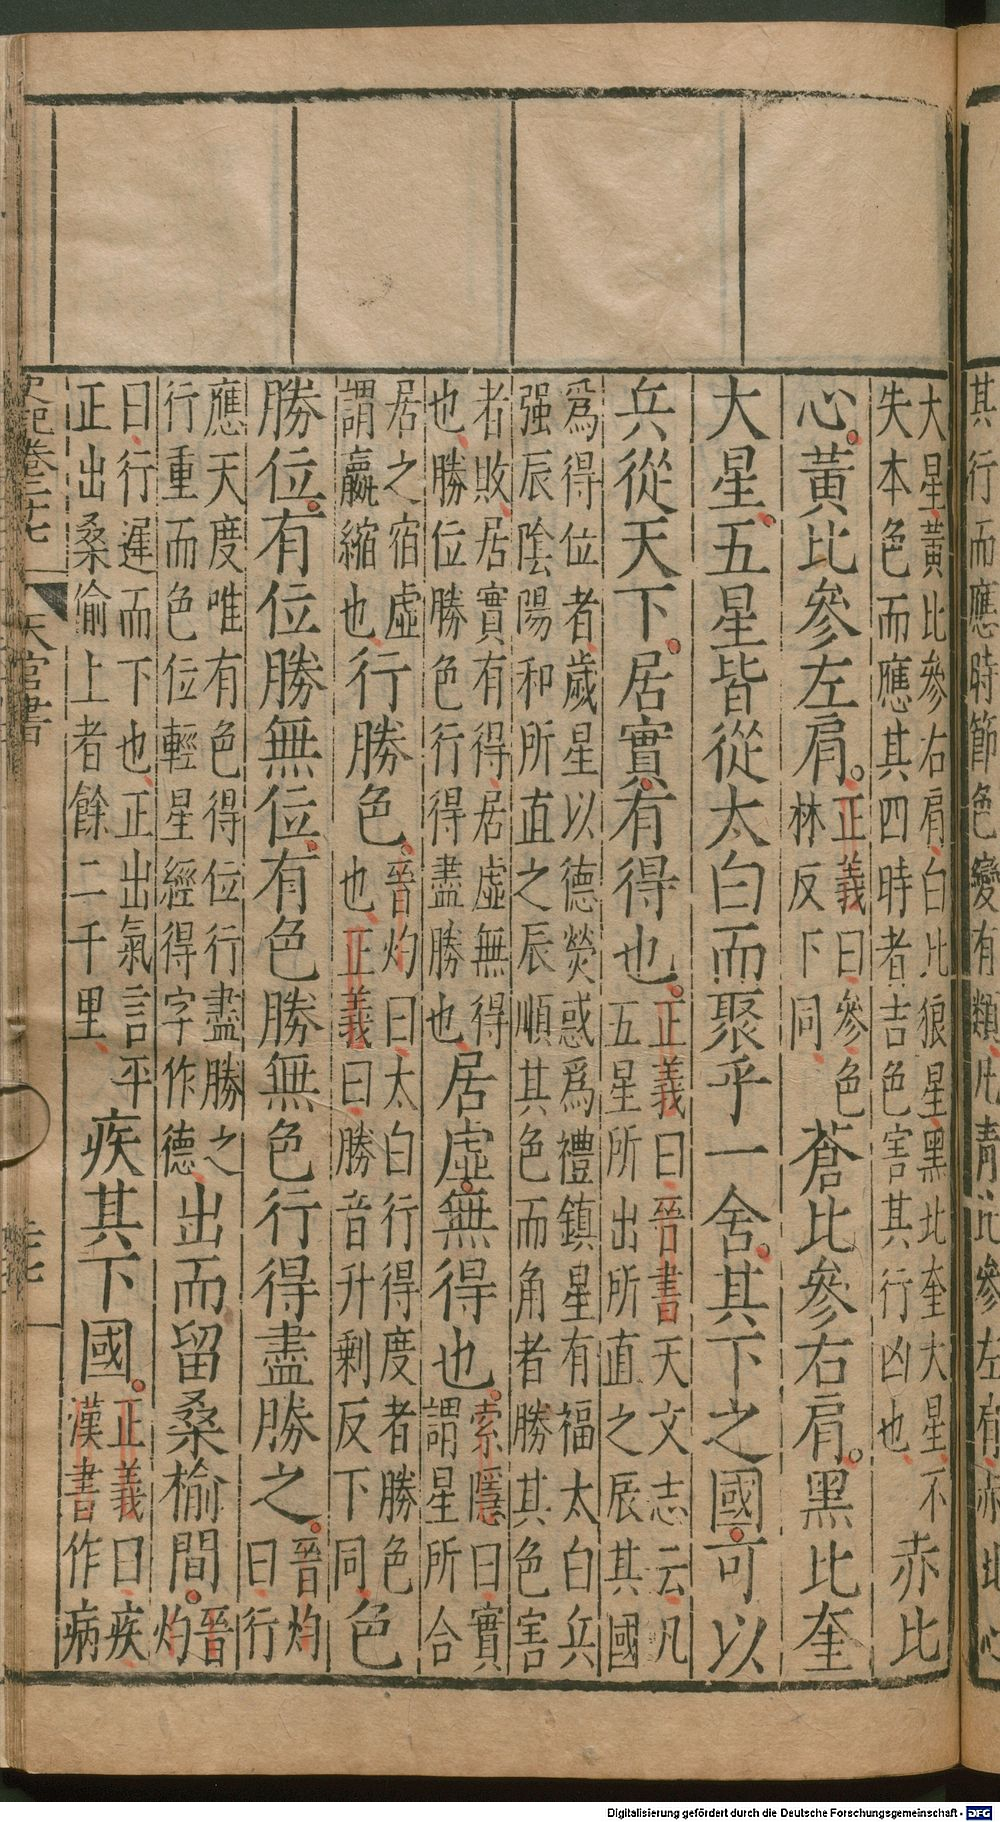 其行而應時節色變有類凡青比參左肩赤比心
大星黃比參右肩白比狼星黑比奎大星不
失本色而應其四時者吉色害其行凶也
赤比
心黃比參左肩
正義曰參色
林反下同
蒼比參右肩黑比奎
大星五星皆從太白而聚乎一舍其下之國可以
兵從天下居實有得也
正義曰晉書天文志云凡
五星所出所直之辰其國
爲得位者歲星以德熒惑爲禮鎮星有福太白兵
强辰陰陽和所直之辰順其色而角者勝其色害
者敗居實有得居虛無得
也勝位勝色行得盡勝也
居虛無得也
索隱曰實
謂星所合
居之宿虛
謂贏縮也
行勝色
晉灼曰太白行得度者勝色
也正義曰勝音升剩反下同
色
勝位有位勝無位有色勝無色行得盡勝之
晉灼
曰行
應天度唯有色得位行盡勝之
行重而色位輕星經得字作德
出而留桑榆間
晉
灼
曰行遲而下也正出氣言平
正出桑偷上者餘二千里
疾其下國
正義曰疾
漢書作病
史記卷二十七 天官書
Digitalisierung gefördert durch die Deutsche Forschungsgemeinschaft - DFG